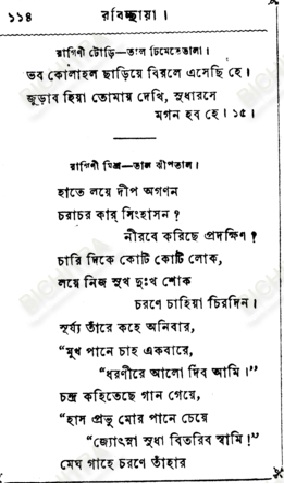 ১১৪ রবিচ্ছায়া।
রাগিণী টোড়ি—তাল ঢিমেতেতালা।
ভব কোলাহল ছাড়িয়ে বিরলে এসেছি হে।
জুড়াব হিয়া তোমায় দেখি, সুধারসে
মগন হব হে। ১৫।
রাগিণী মিশ্র—তাল ঝাঁপতাল।
হাতে লয়ে দীপ অগণন
চরাচর কার্ সিংহাসন?
নীরবে করিছে প্রদক্ষিণ?
চারি দিকে কোটি কোটি লোক,
লয়ে নিজ সুখ দুঃখ শোক
চরণে চাহিয়া চিরদিন।
সূর্য্য তাঁরে কহে অনিবার,
“মুখ পানে চাহ একবারে,
“ধরণীরে আলো দিব আমি।”
চন্দ্র কহিতেছে গান গেয়ে,
“হাস প্রভু মোর পানে চেয়ে
“জ্যোৎস্না সুধা বিতরিব স্বামি!”
মেঘ গাহে চরণে তাঁহার
BICHITRA